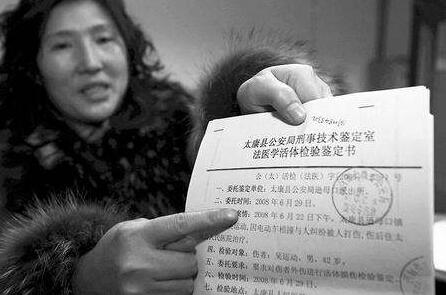 太康县公安局刑事技术鉴定室
法医学活体检验鉴定书
公（太）活检（法医）字
号
一、委托鉴定单位：太康县公安局逊母口派出所。
二、委托时间：2008年6月29日。
情：2008年6月22日下午，太康县逊母口镇
因电动车相撞与人纠纷被人打伤，伤后住太
民医院治疗。
四、检验对象：伤者：吴运动，男，62岁。
五、委托要求：要求对伤者外伤进行活体损伤检验鉴定。
六、检验时间：2008年6月29日。
七、检验地点：太